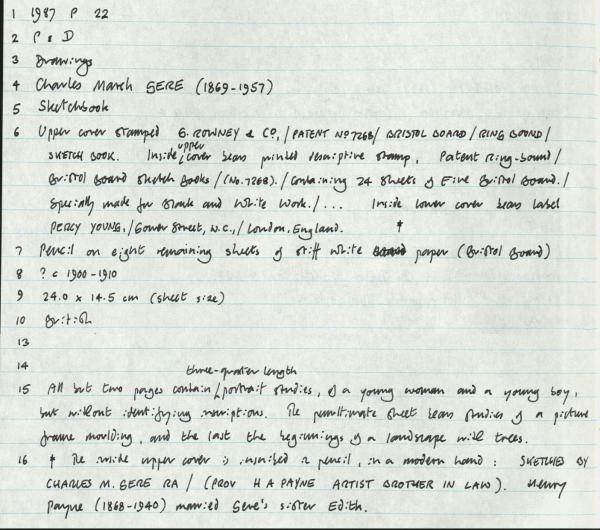 1 1987 P 22
2 P & D
3 Drawings
4 Charles March GERE (1869-1957)
5 Sketchbook
6 Upper cover stamped G. ROWNEY & CO, / PATENT No 7268 / BRISTOL BOARD / RING BOUND /
SKETCH BOOK. Inside upper cover bears printed descriptive stamp, Patent Ring-bound /
Bristol Board Sketch Books / (No. 7268). / Containing 24 Sheets of Fine Bristol Board. /
Specially made for Black and White Work. / ... Inside lower cover bears label
PERCY YOUNG, / Gower Street, W.C., / London, England. *
7 Pencil on eight remaining sheets of stiff white paper (Bristol Board)
8 ? c 1900-1910
9 24.0 x 14.5 cm (sheet size)
10 British
13
14
15 All but two pages contain / three-quarter length portrait studies, of a young woman and a young boy,
but without identifying inscriptions. The penultimate sheet bears studies of a picture
frame moulding, and the last the beginnings of a landscape with trees.
16 * The inside upper cover is inscribed in pencil, in a modern hand: SKETCHES BY
CHARLES M. GERE RA / (PROV H A PAYNE ARTIST BROTHER IN LAW). Henry
Payne (1868-1940) married Gere's sister Edith.